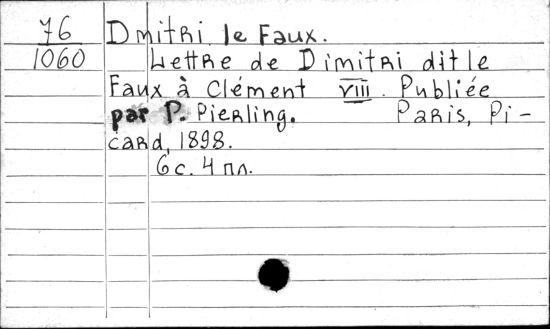 76 Dmitri le Faux.
1060 Lettre de Dimitri dit le
Faux à Clément VIII. Publiée
par P. Pierling. Paris, Pi-
card, 1898.
6 с. 4 пл.